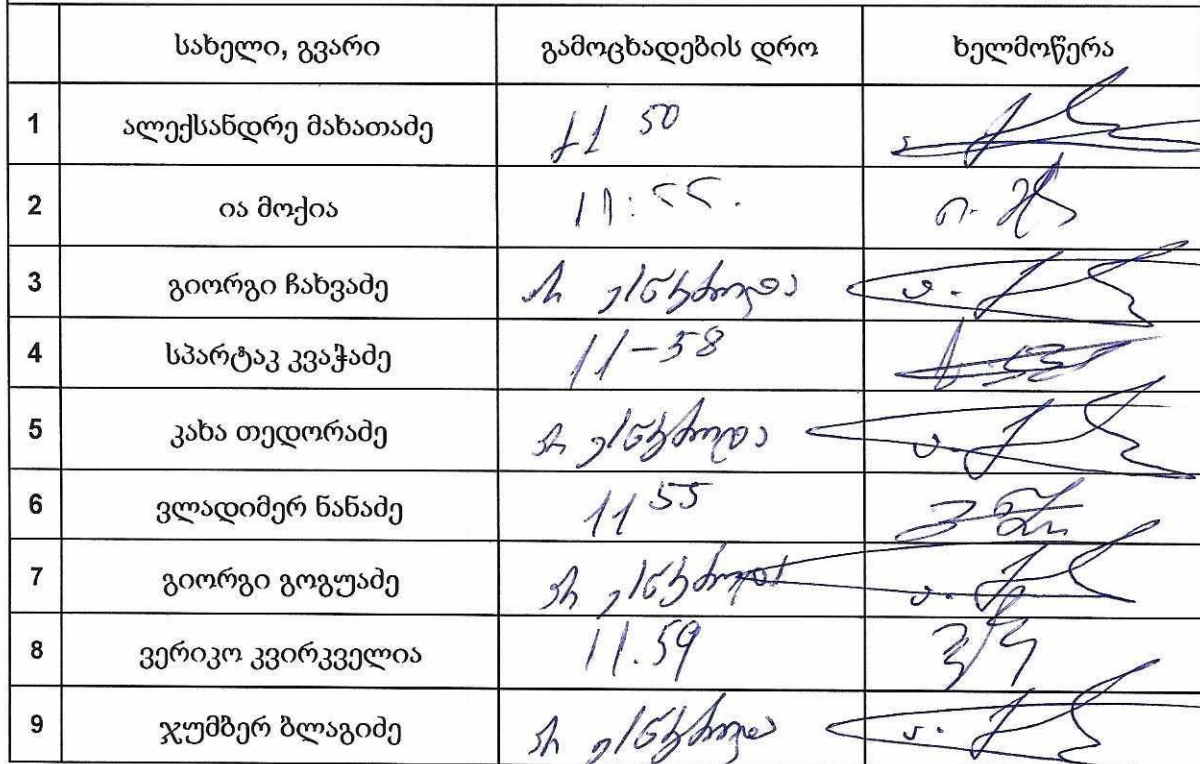 სახელი, გვარი გამოცხადების დრო ხელმოწერა
1 ალექსანდრე მახათაძე 11 50
2 ია მოქია 11:55.
3 გიორგი ჩახვაძე არ ესწრებოდა
4 სპარტაკ კვაჭაძე 11-58
5 კახა თედორაძე არ ესწრებოდა
6 ვლადიმერ ნანაძე 11 55
7 გიორგი გოგუაძე არ ესწრებოდა
8 ვერიკო კვირკველია 11.59
9 ჯუმბერ ბლაგიძე არ ესწრებოდა